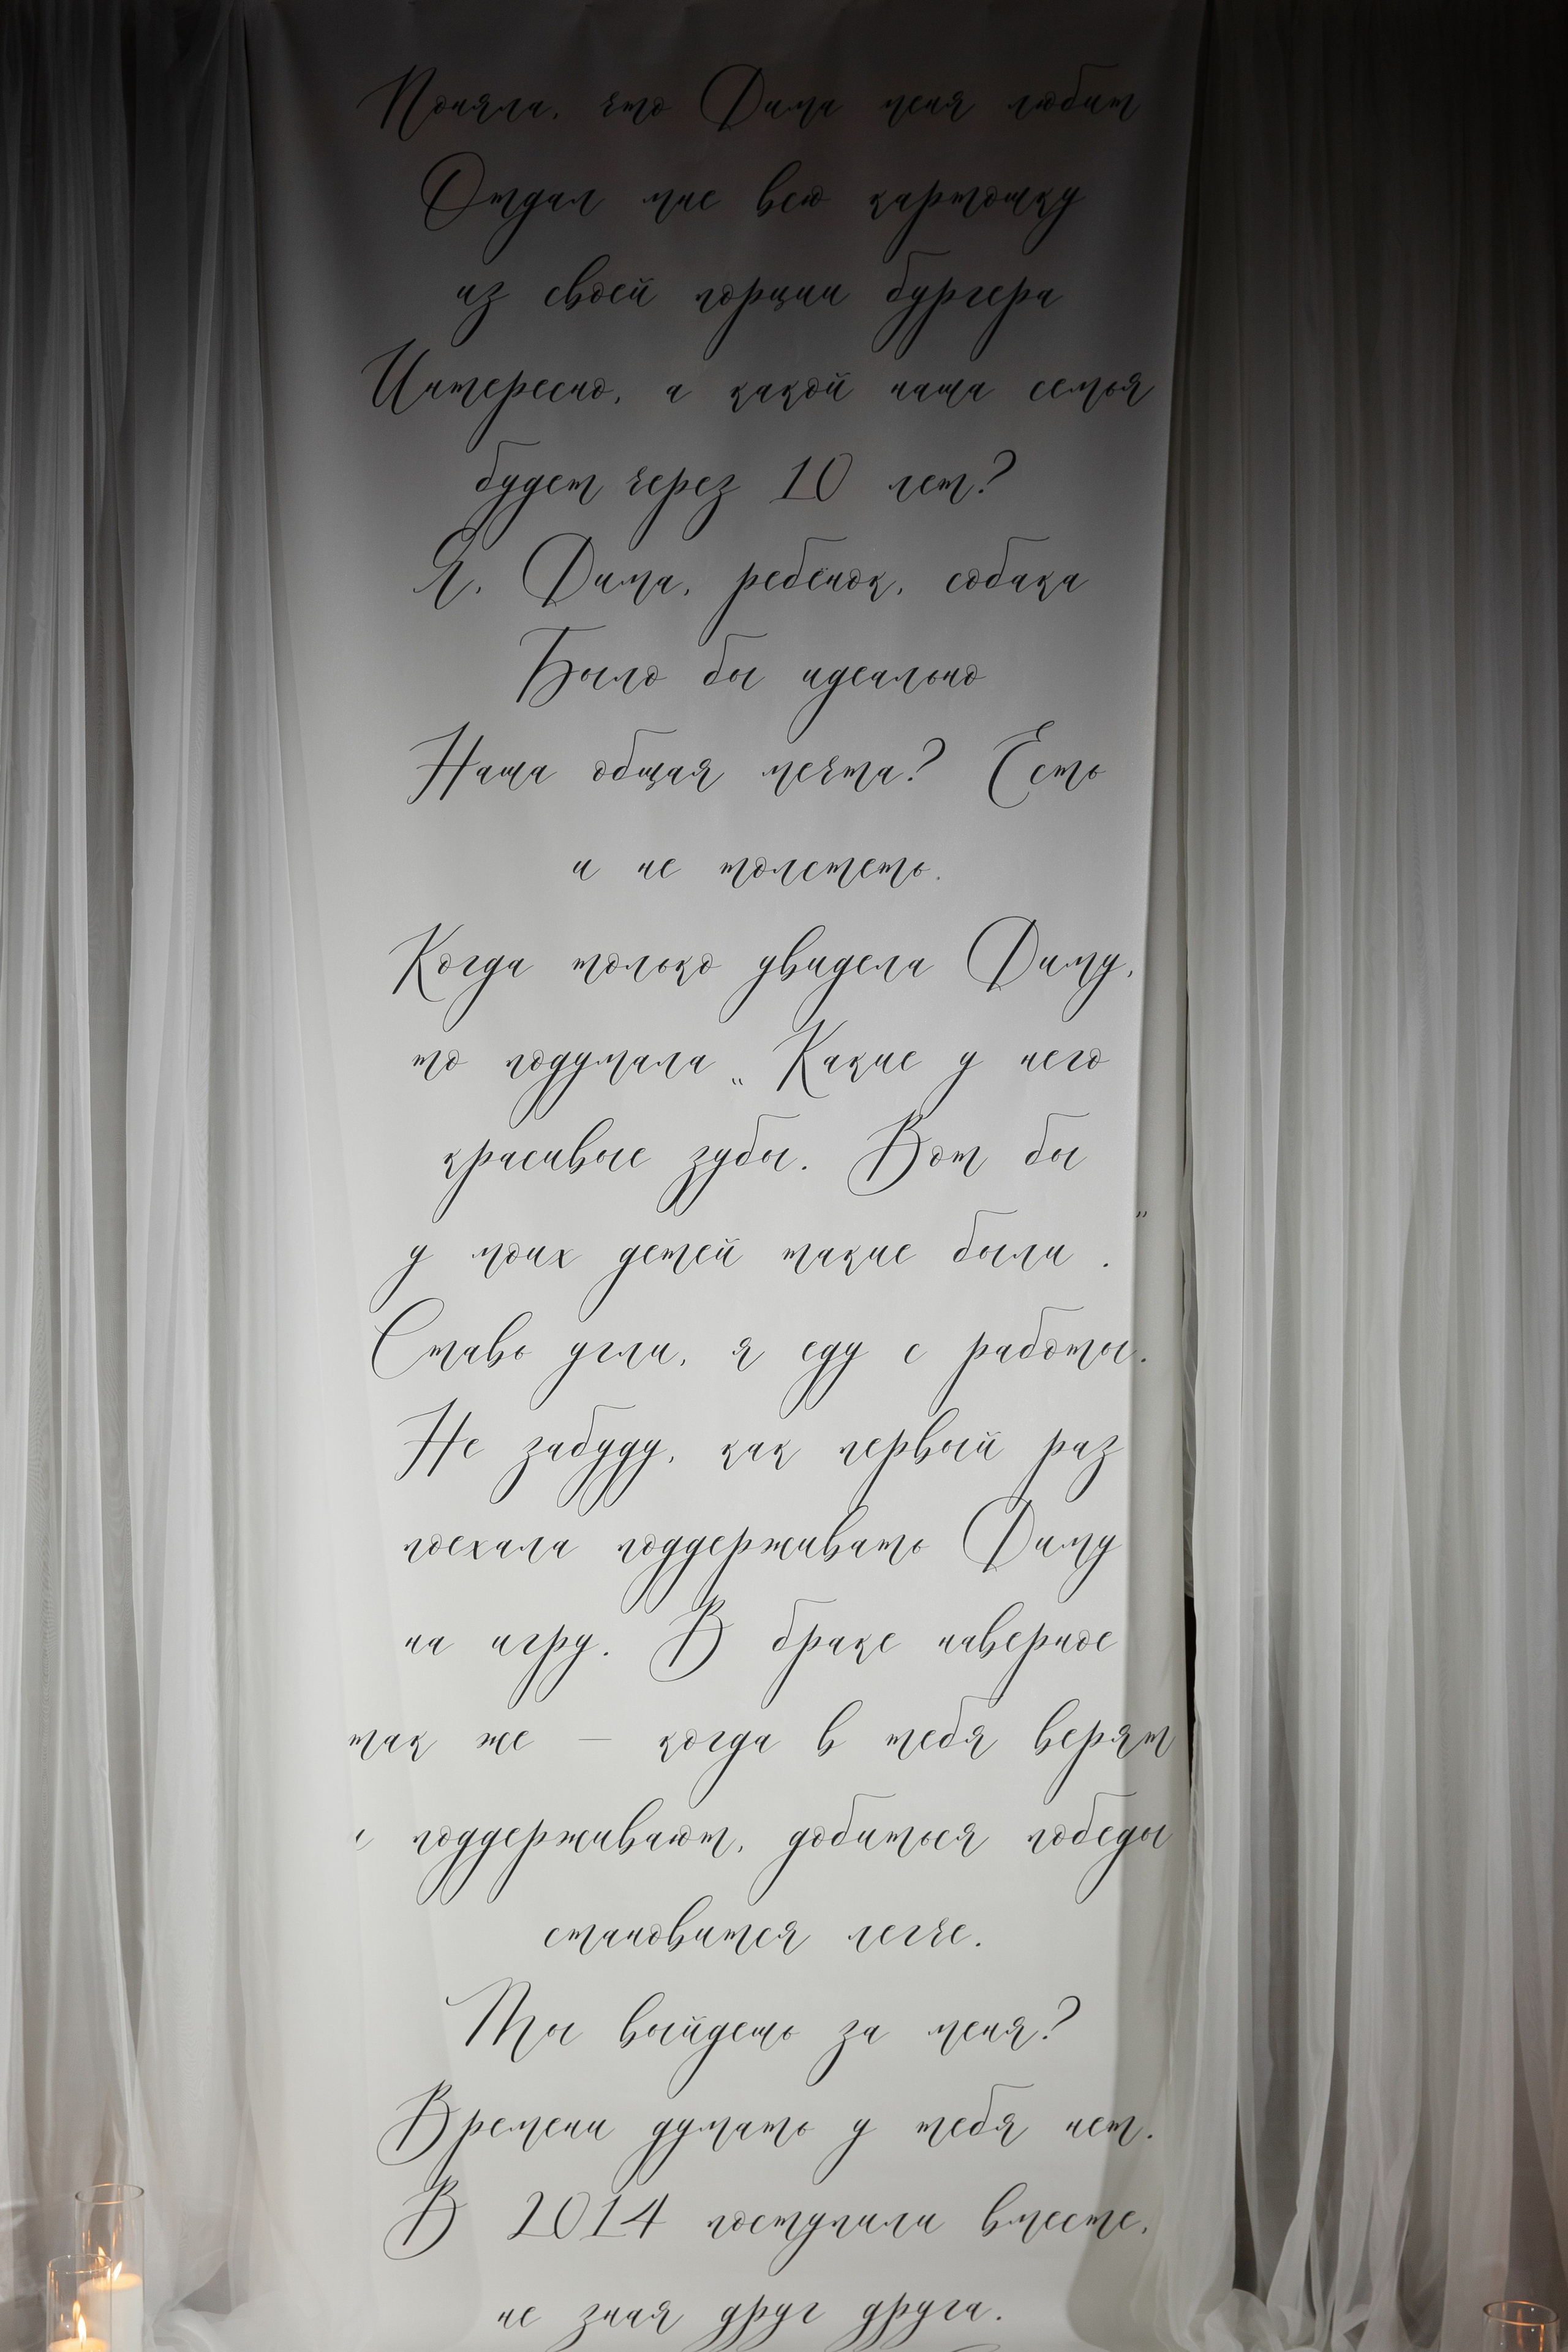 Поняла, что Дима меня любит
Отдал мне всю картошку
из своей порции бургера
Интересно, а какой наша семья
будет через 10 лет?
Я, Дима, ребёнок, собака
Было бы идеально
Наша общая мечта? Есть
и не толстеть.
Когда только увидела Диму,
то подумала „Какие у него
красивые зубы. Вот бы
у моих детей такие были".
Ставь угли, я еду с работы.
Не забуду, как первый раз
поехала поддерживать Диму
на игру. В браке наверное
так же — когда в тебя верят
и поддерживают, добиться победы
становится легче.
Ты выйдешь за меня?
Времени думать у тебя нет.
В 2014 поступили вместе,
не зная друг друга.